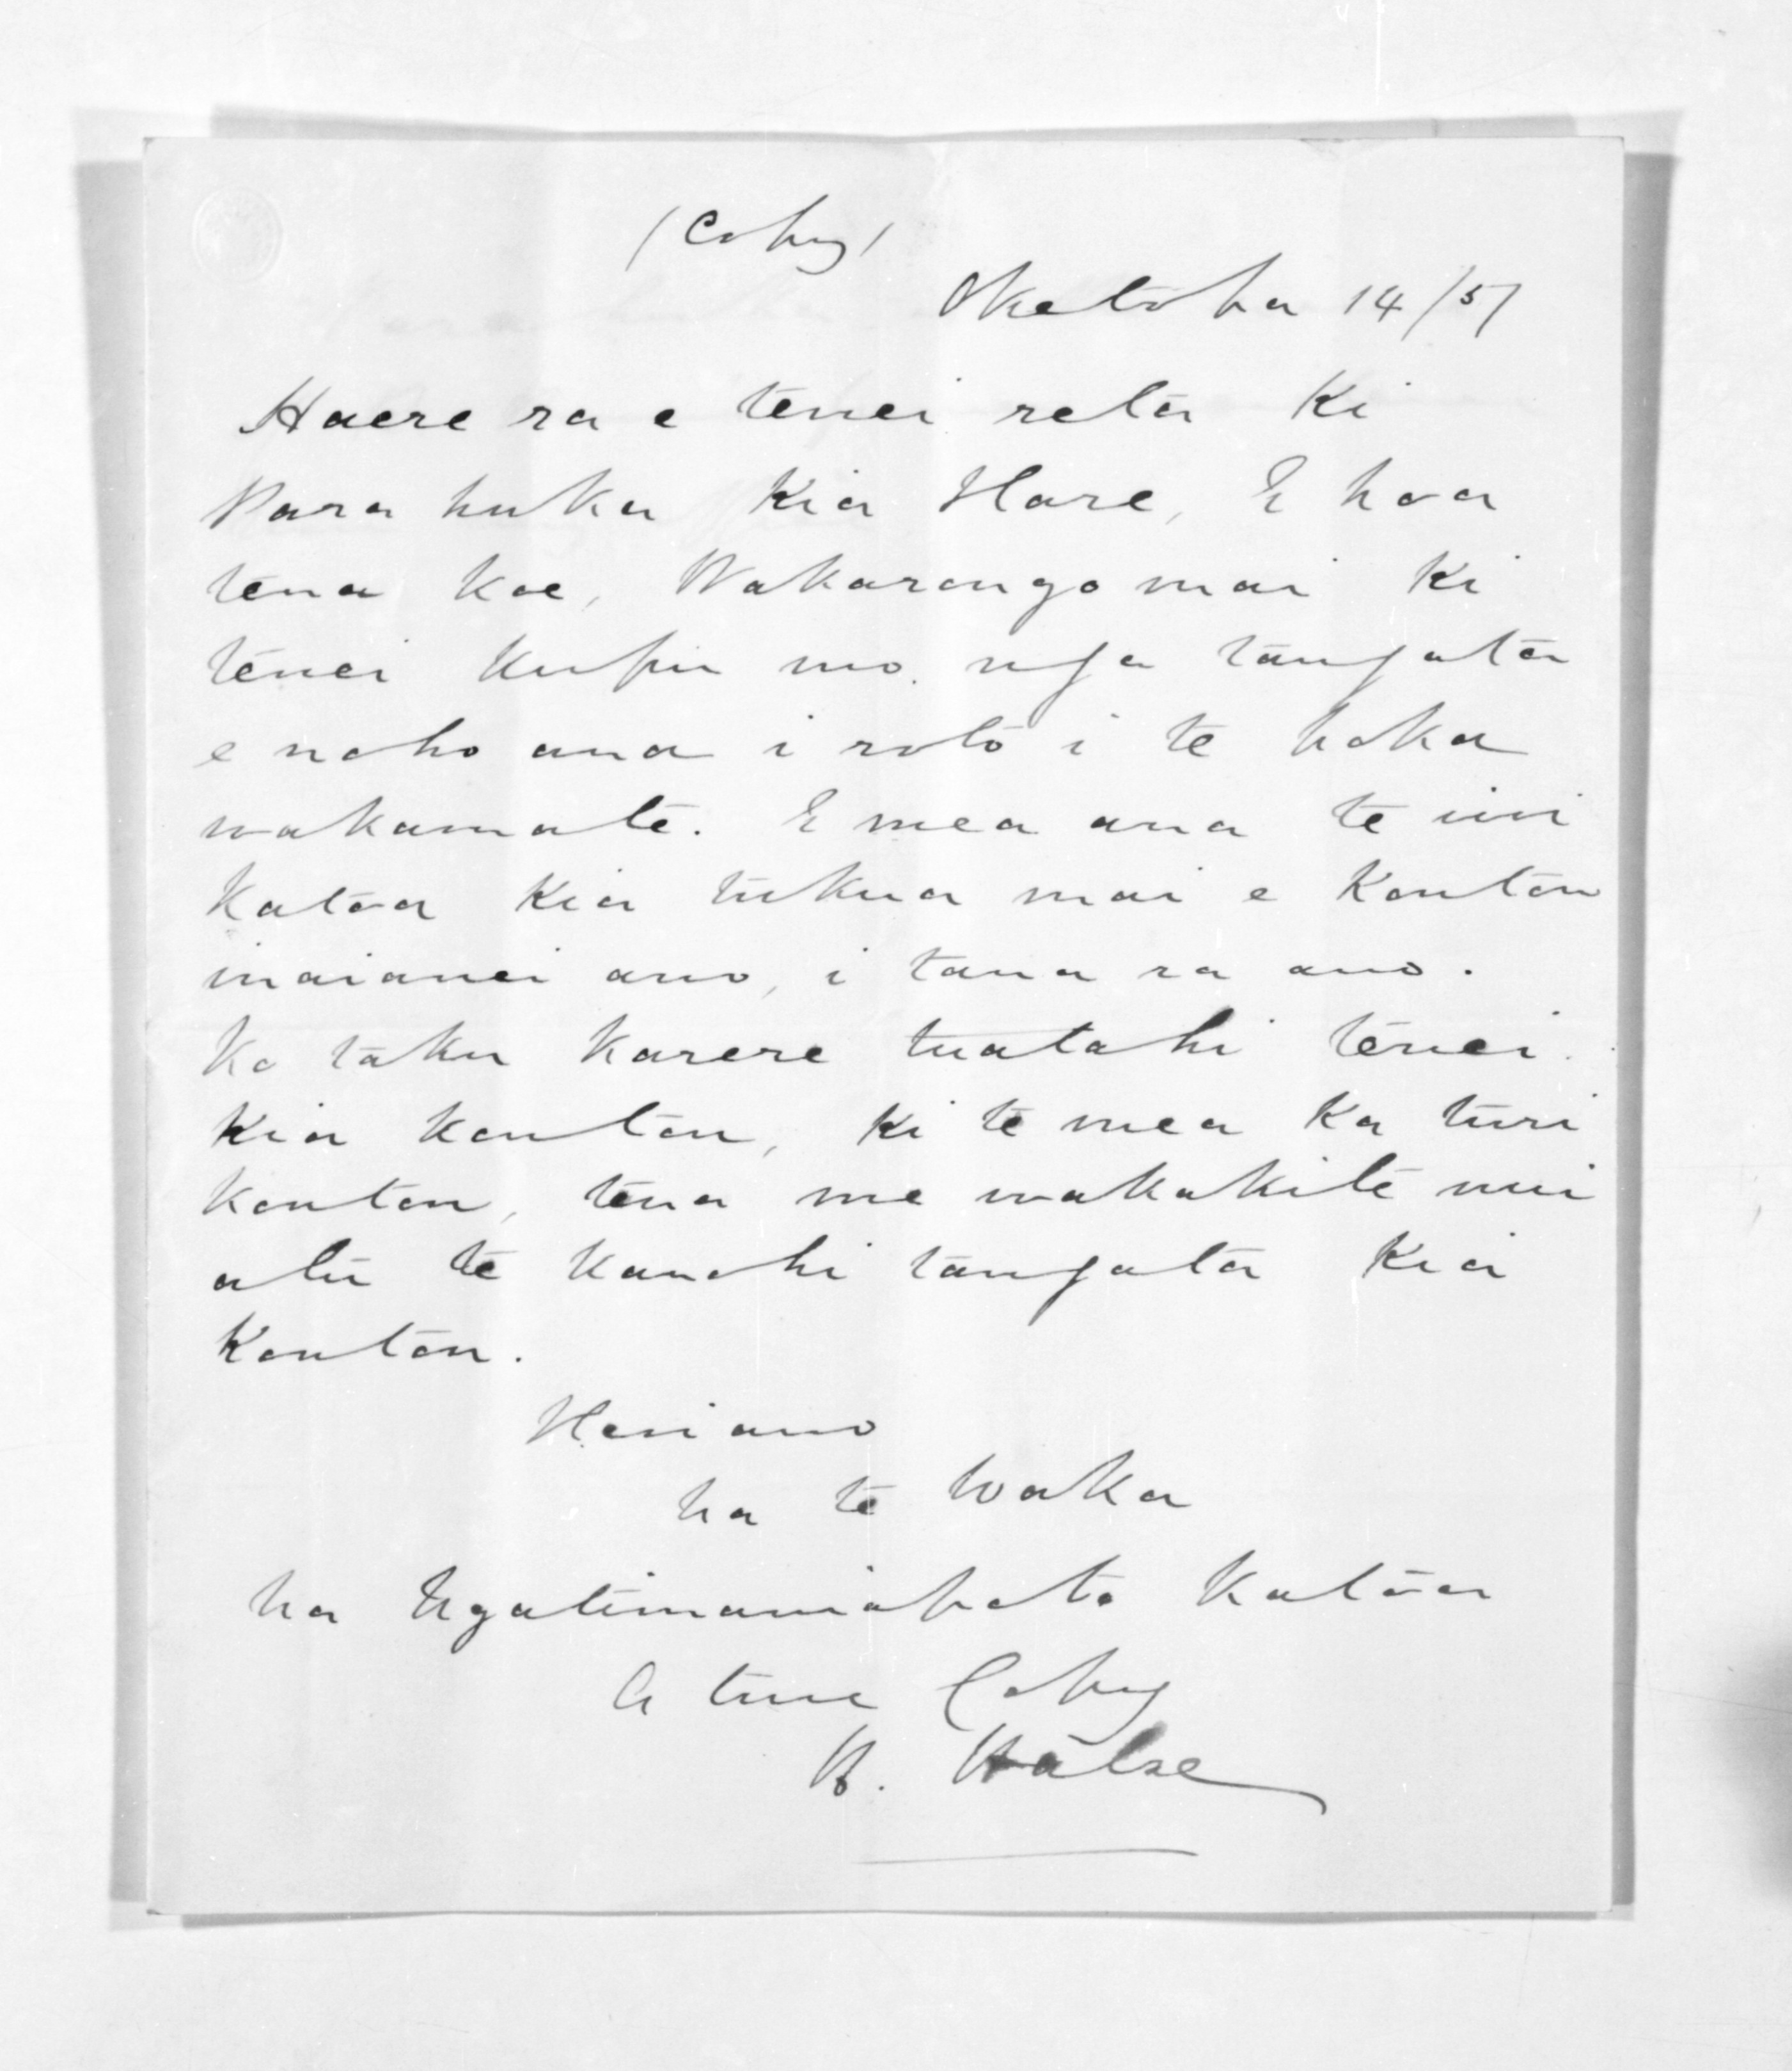 (Copy)
Oketopa 14/57
Haere ra e tenei reta ki
Parahuka kia Hare, E hoa
tena koe, Wakarongo mai ki
tenei kupu mo nga tangata
e noho ana i roto i te hoka
wakamate. E mea ana te iwi
katoa kia tukua mai e Koutou
inaianei ano, i tana ra ano.
Ko taku karere tuatahi tenei
kia koutou, ki te mea ka turi
koutou, tena me wakakite mai
atu te kanohi tangata kia
Koutou.
Heoi ano
Na te Waka
Na Ngatimaniapoto katoa
A true Copy
H. Halse